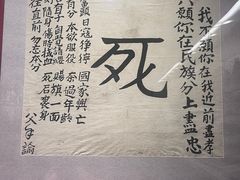 我不願你在我近前盡孝
願你在民族分上盡忠
死
日寇猙獰 國家興亡
有分 本欲服役 奈過年齡
有子 自覺請纓 賜旗一面
隨身 傷時拭血 死
往直前 勿忘本分
父手諭